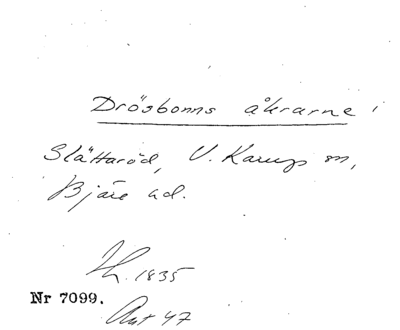 Drösbonns åkrarne
Slättaröd, V. Karups sn,
Bjäre hd.
1835
Nr 7099.
Ant 47